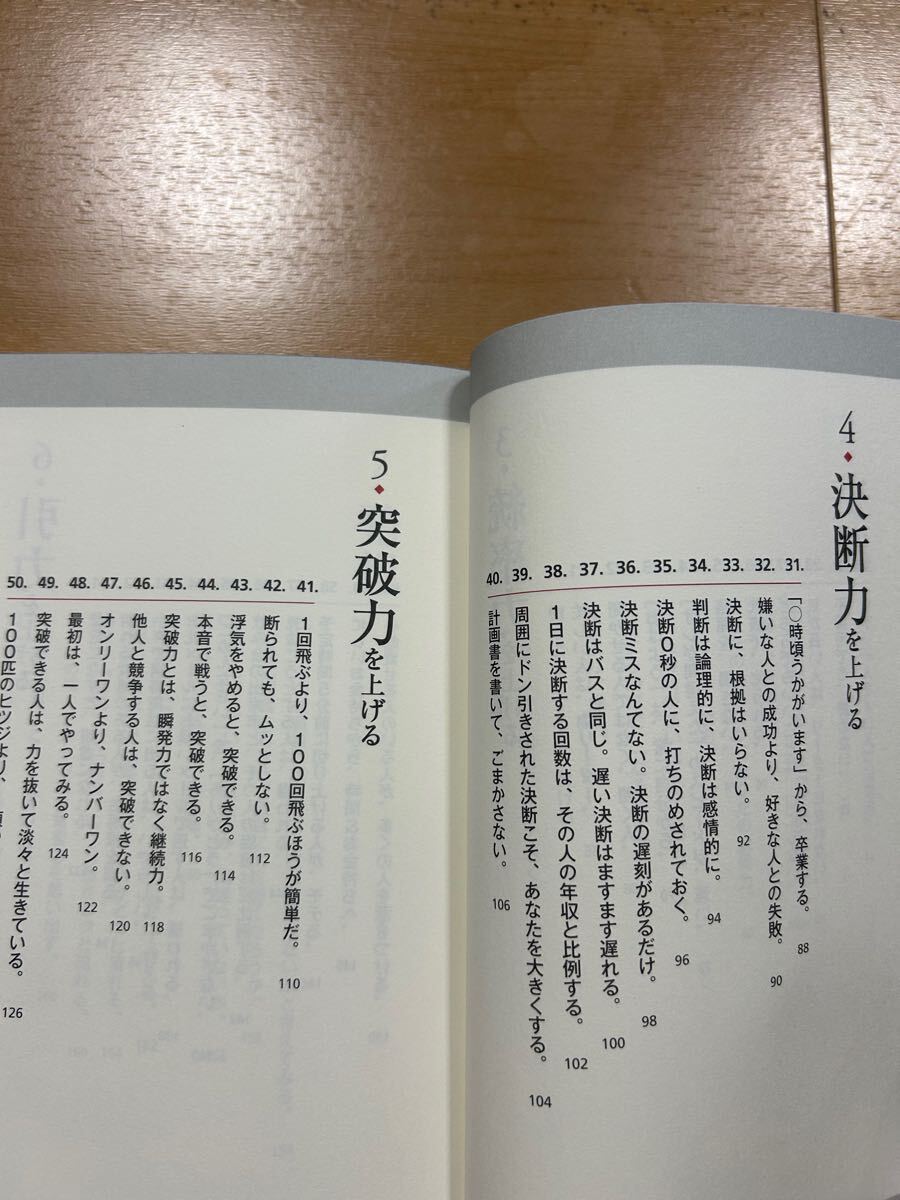 4◆決断力を上げる
31. 「○時頃うかがいます」から、卒業する。 88
32. 嫌いな人との成功より、好きな人との失敗。 90
33. 決断に、根拠はいらない。 92
34. 判断は論理的に、決断は感情的に。 94
35. 決断0秒の人に、打ちのめされておく。 96
36. 決断ミスなんてない。決断の遅刻があるだけ。 98
37. 決断はバスと同じ。遅い決断はますます遅れる。 100
38. 1日に決断する回数は、その人の年収と比例する。 102
39. 周囲にドン引きされた決断こそ、あなたを大きくする。 104
40. 計画書を書いて、ごまかさない。 106
5◆突破力を上げる
41. 1回飛ぶより、100回飛ぶほうが簡単だ。 110
42. 断られても、ムッとしない。 112
43. 浮気をやめると、突破できる。 114
44. 本音で戦うと、突破できる。 116
45. 突破力とは、瞬発力ではなく継続力。 118
46. 他人と競争する人は、突破できない。 120
47. オンリーワンより、ナンバーワン。 122
48. 最初は、一人でやってみる。 124
49. 突破できる人は、力を抜いて淡々と生きている。 126
50. 100匹のヒツジより、